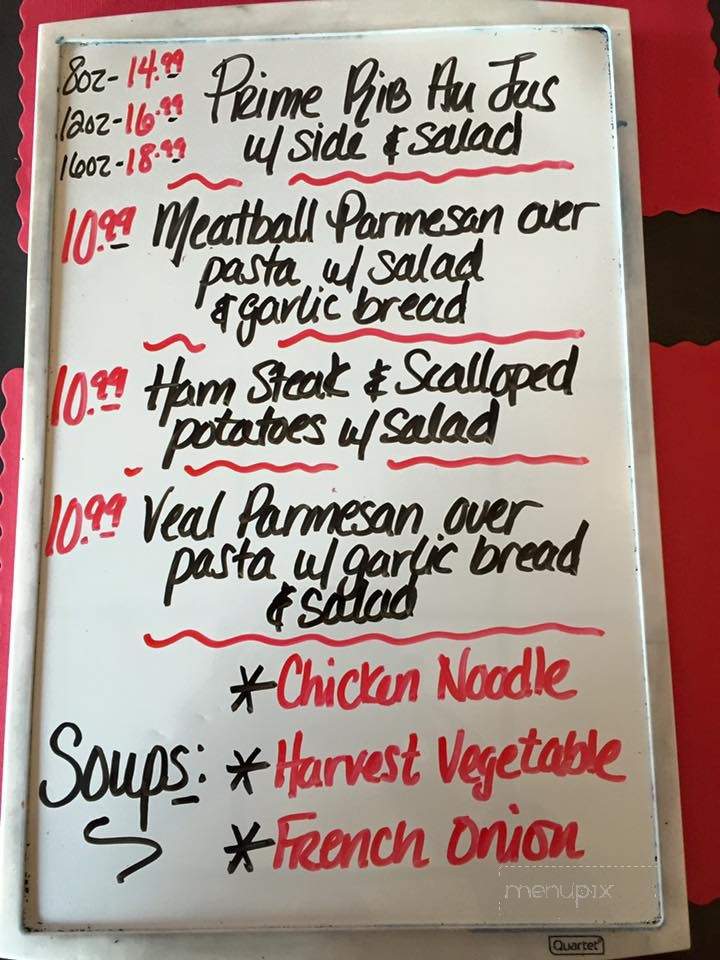 8oz - 14.99 Prime Rib Au Jus
12oz - 16.99 w/ side & salad
16oz - 18.99
10.99 Meatball Parmesan over
pasta w/ salad
& garlic bread
10.99 Ham Steak & Scalloped
potatoes w/ salad
10.99 Veal Parmesan over
pasta w/ garlic bread
& salad
* Chicken Noodle
Soups: * Harvest Vegetable
* French Onion
menupix
Quartet